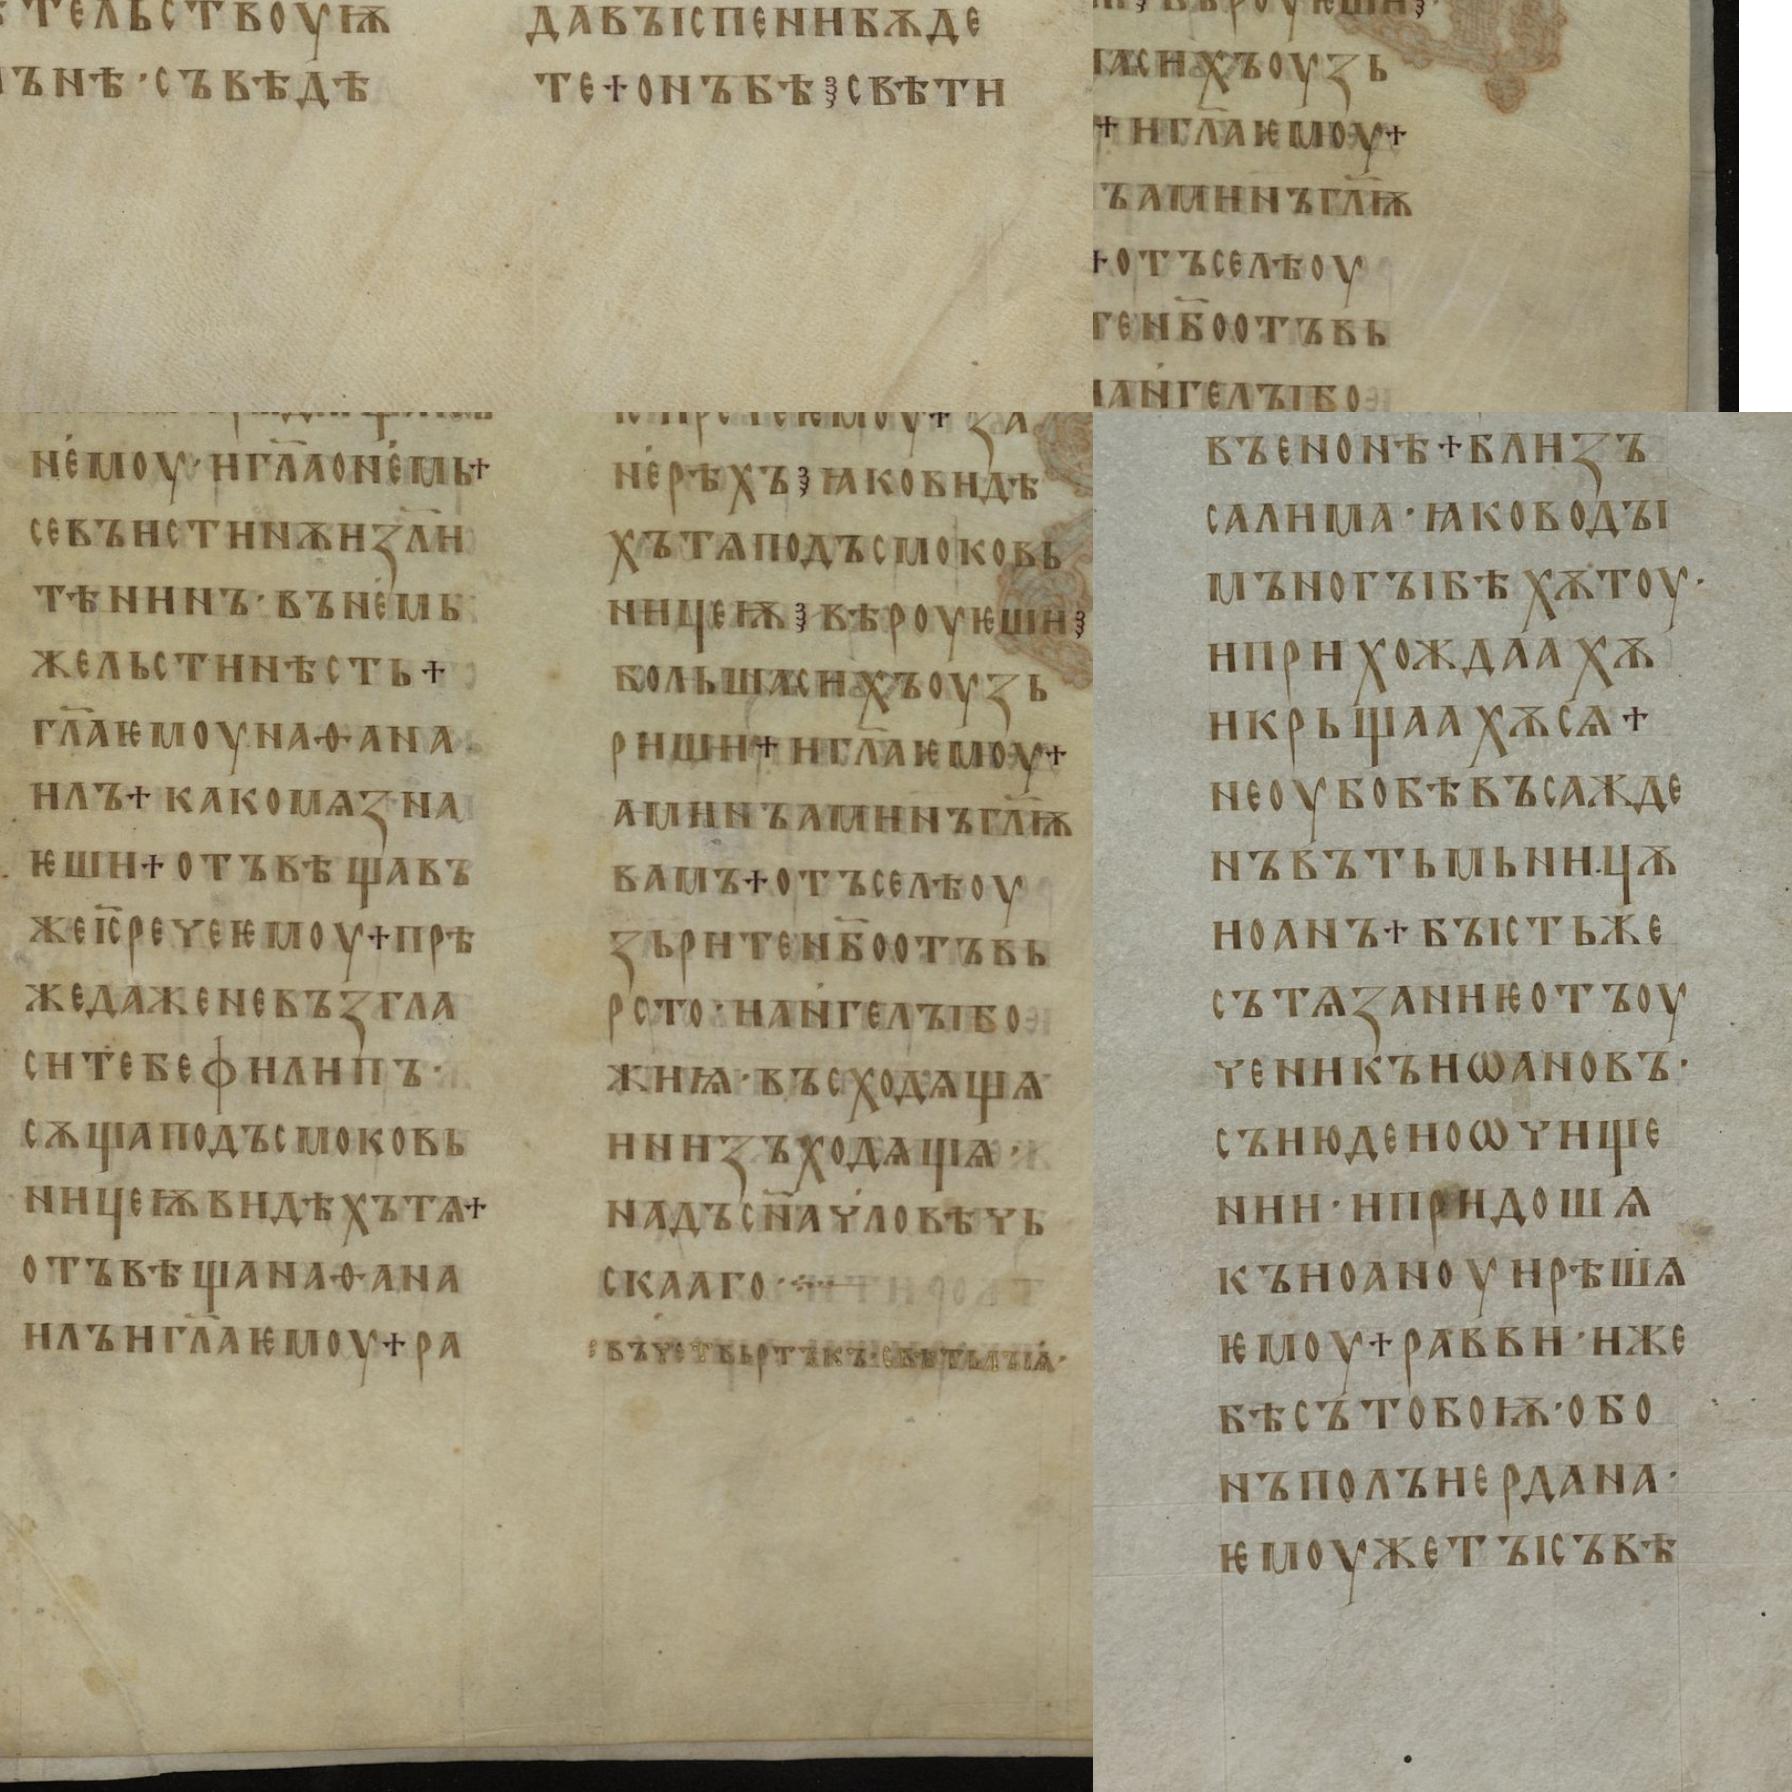 тельствоуѭ
мънѣ·съвѣдѣ
давъіспенибѫде
те+онъбѣ⁏свѣти
сихъоузь
+игл҃аѥмоу+
ъаминъгл҃ѭ
+отъселѣоу
тенб҃оотъвь
анг҄елъібо
н҄емоу·игл҃аон҄емь+
севъистинѫизл҃и
тѣнинъ·вън҄емь
жельстинѣсть+
гл҃аѥмоунаѳана
илъ+какомѧзна
ѥши+отъвѣщавъ
жеіс҃речеѥмоу+прѣ
жедаженевъзгла
ситебефилипъ·
сѫщаподъсмоковь
ницеѭвидѣхътѧ+
отъвѣщанаѳана
илъигл҃аѥмоу+ра
н҄ерѣхъ⁏ꙗковидѣ
хътѧподъсмоковь
ницеѭ⁏вѣроуѥши⁏
большѧсихъоузь
риши+игл҃аѥмоу+
аминъаминъгл҃ѭ
вамъ+отъселѣоу
зьритенб҃оотъвь
рсто·ианг҄елъібо
жиѩ·въсходѧщѧ
инизъходѧщѧ·
надъсн҃ачловѣчь
скааго·
въенонѣ+близъ
салима·ꙗководъі
мъногъібѣхѫтоу·
иприхождаахѫ
икрьщаахѫсѧ+
неоубобѣвъсажде
нъвътьмьницѫ
иоанъ+бъістьже
сътѧзаниѥотъоу
ченикъиѡановъ·
съиюдеиоѡчище
нии·ипридошѧ
къиоаноуирѣшѧ
ѥмоу+равви·иже
бѣсътобоѭ·обо
нъполъиердана·
ѥмоужетъісъвѣ